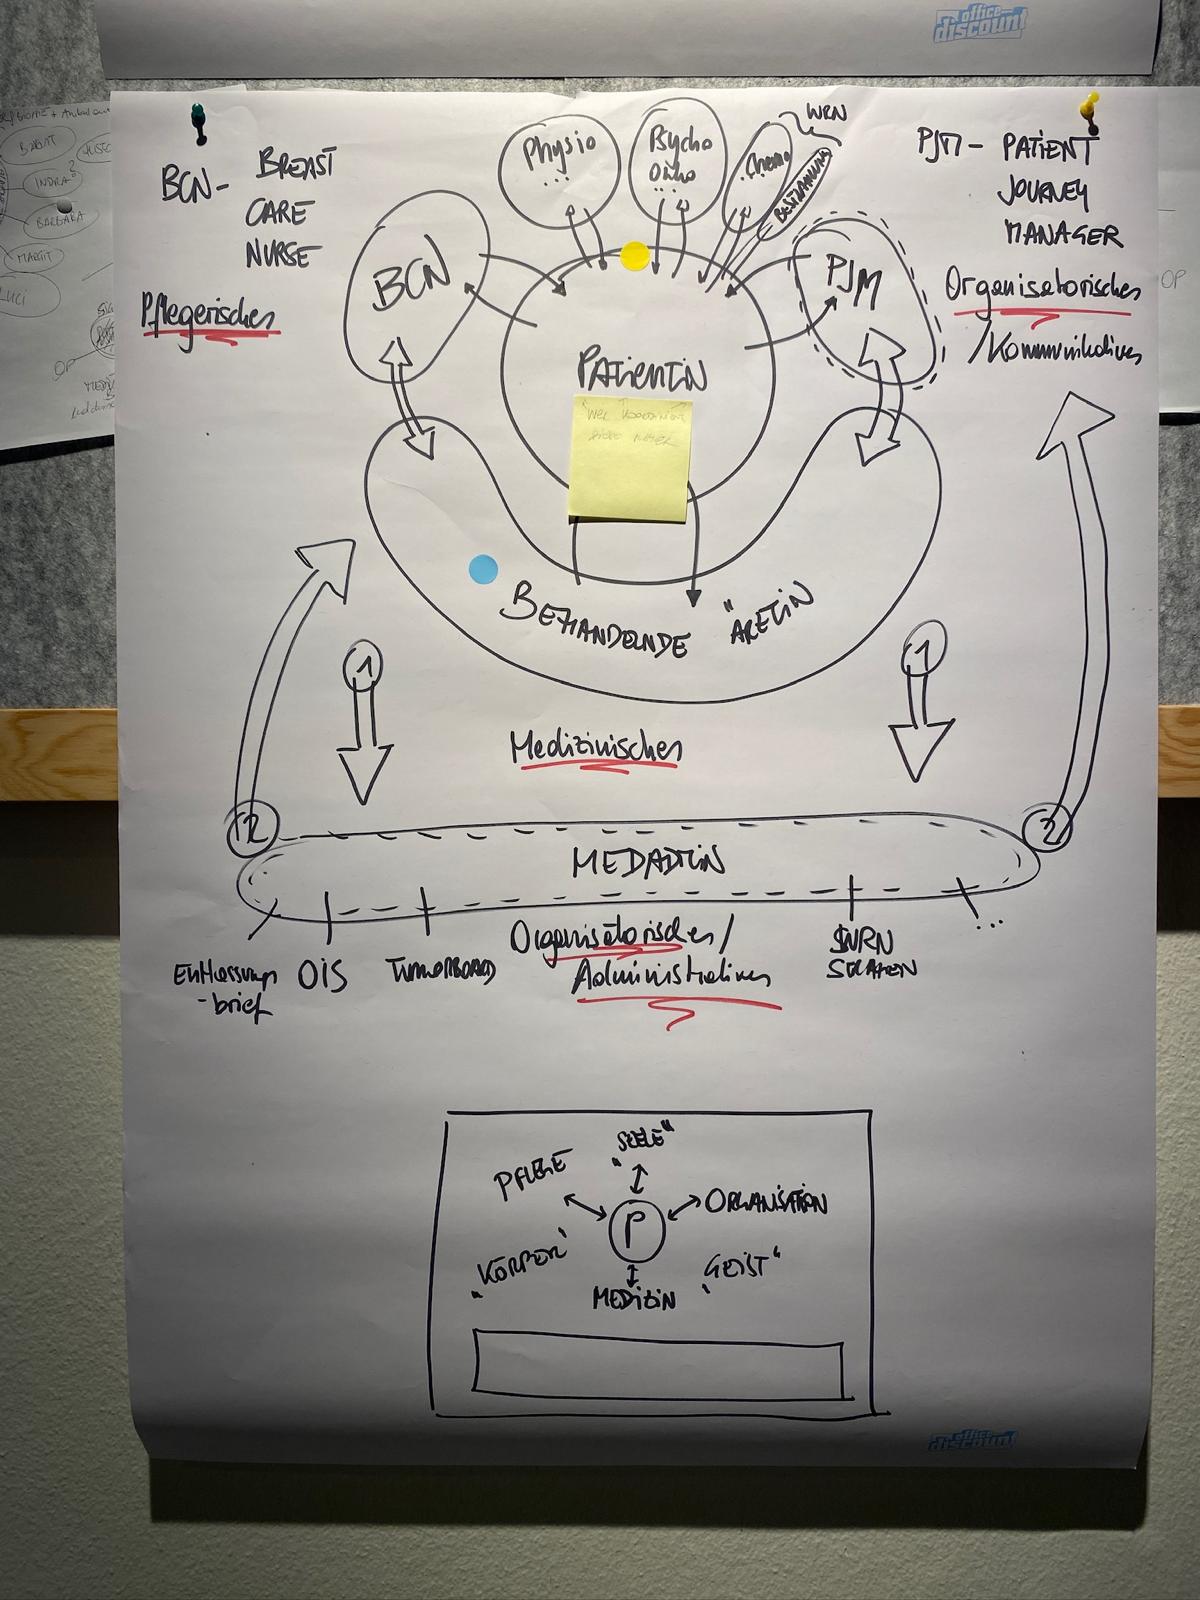 office
discount
BABIT
INDRA?
BARBARA
MARGIT
LUCI
OP
BCN - BREAST
CARE
NURSE
Pflegerisches
Physio
...
Psycho
Onko
...
Chemo
BESTRAHLUNG
WRN
PJM - PATIENT
JOURNEY
MANAGER
Organisatorisches
/Kommunikatives
OP
BCN
PJM
PATIENTIN
WER
BEHANDELNDE ÄRZTIN
1
1
Medizinisches
2
2
MEDADTIN
Entlassungs
-brief
OIS
TUMORBOARD
Organisatorisches/
Administratives
SVRN
...
"SEELE"
PFLEGE
P
ORGANISATION
"KÖRPER"
"GEIST"
MEDIZIN
office
discount